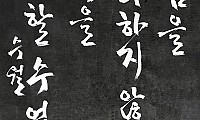 을
하지 않
을
할 수
수월